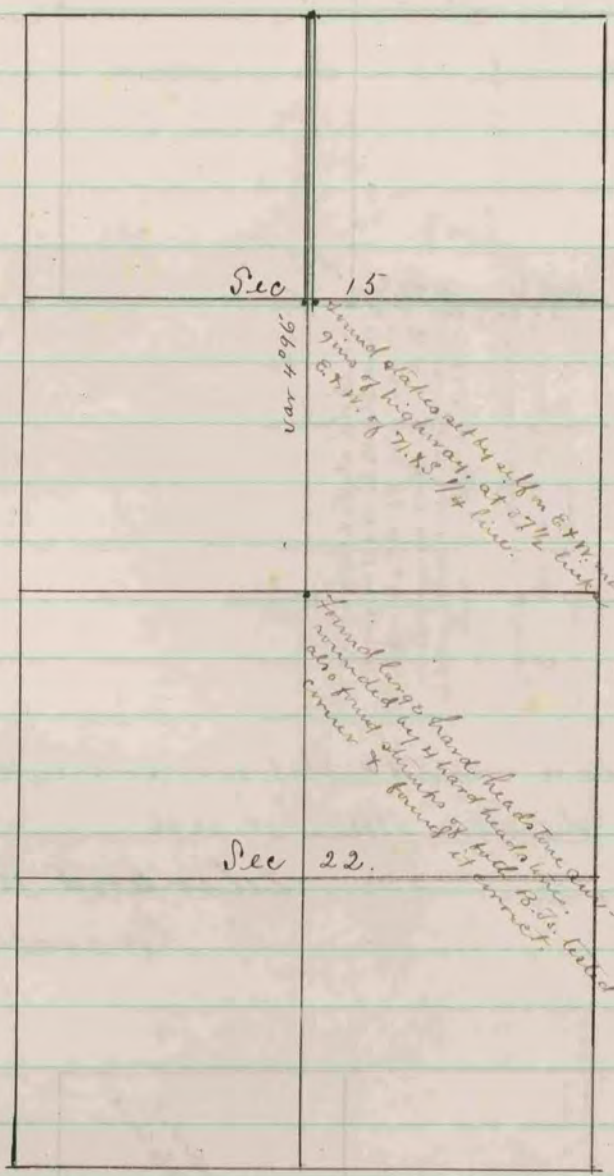 Sec 15
var 4°96'
Found stakes set by self on E. & W. mar
gins of highway. at 37 1/2 links
E. & W. of N. & S. 1/4 line.
Found large hard headstone sur
rounded by 4 hard heads
also found stumps of both B. Ts. tested
corner & found it correct.
Sec 22.